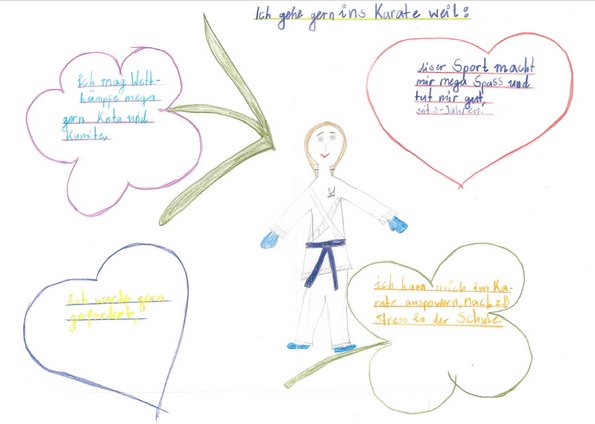 Ich gehe gern ins Karate weil:
ich mag Wett-
kämpfe mega
gern Kata und
Kumite.
diser Sport macht
mir mega Spass und
tut mir gutt,
ich werde gern
gefordert,
ich kann mich im Ka-
rate auspowern, nach z.B
stress in der Schule.